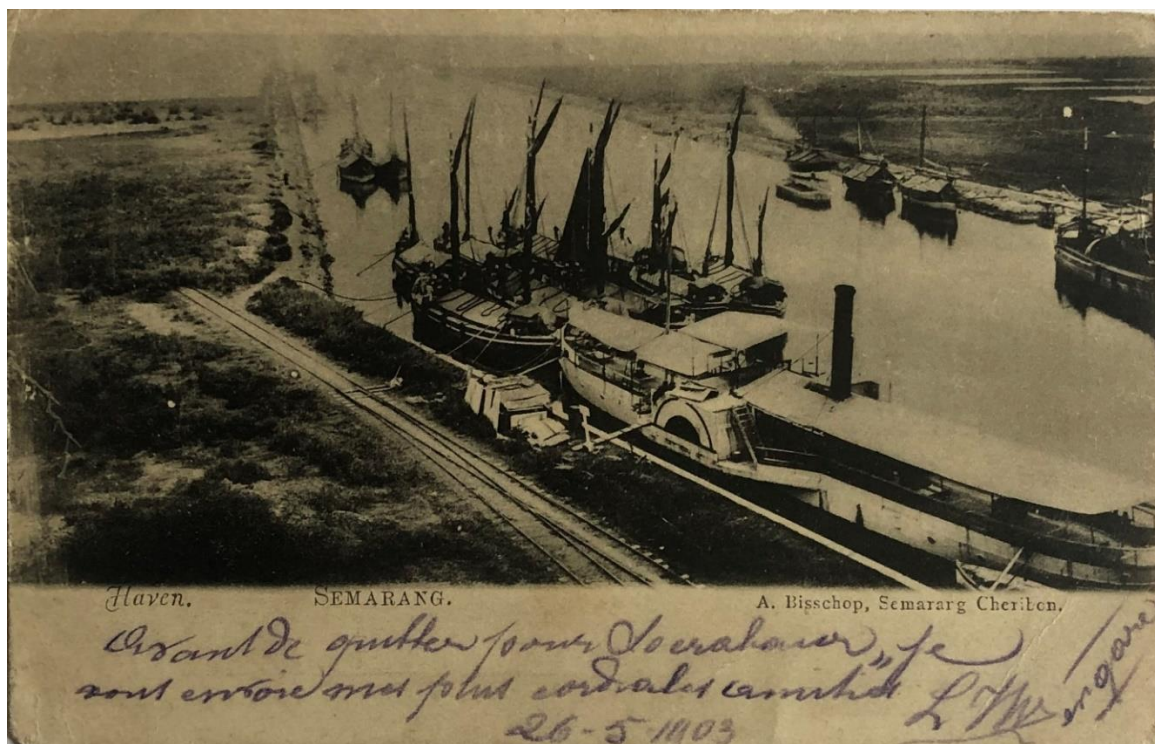 Haven. SEMARANG. A. Bisschop, Semararg Cheribon.
Avant de quitter pour Soerabaia, je
vous envoie mes plus cordiales amitiés
26-5-1903